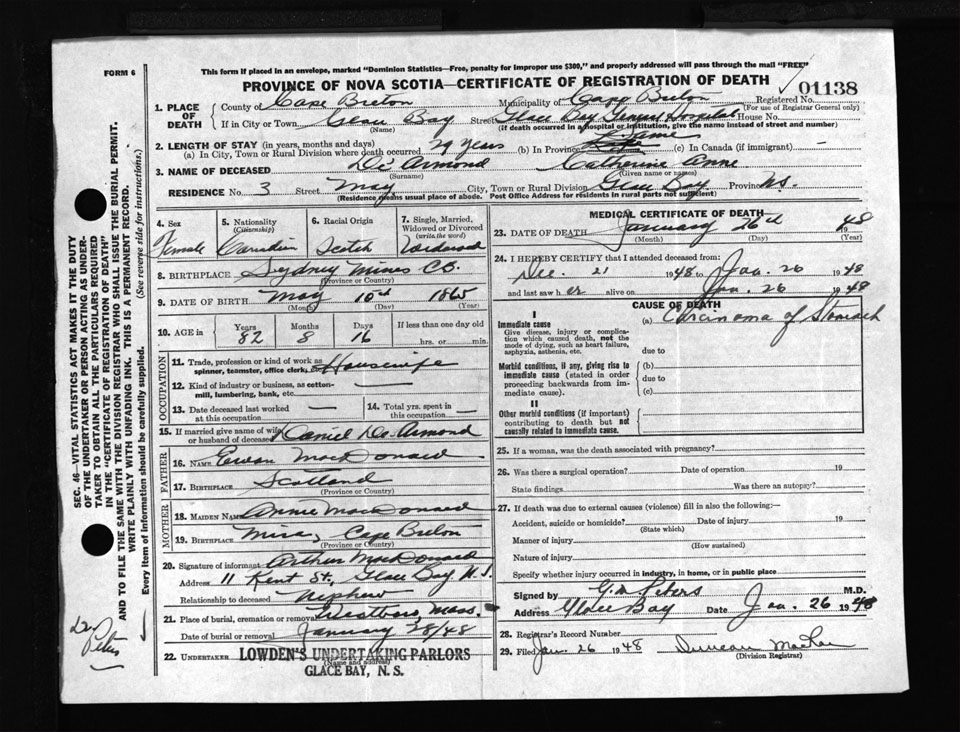 FORM 6
This form if placed in an envelope, marked "Dominion Statistics—Free, penalty for improper use $300," and properly addressed will pass through the mail "FREE"
PROVINCE OF NOVA SCOTIA—CERTIFICATE OF REGISTRATION OF DEATH
01138
1. PLACE OF DEATH
County of Cape Breton Municipality of Cape Breton Registered No.
(For use of Registrar General only)
If in City or Town Glace Bay Street Glace Bay General Hospital House No.
(Name) (If death occurred in a hospital or institution, give the name instead of street and number)
2. LENGTH OF STAY (in years, months and days)
(a) In City, Town or Rural Division where death occurred 29 years (b) In Province Life (c) In Canada (if immigrant) —
3. NAME OF DECEASED De Armond Catherine Anne
(Surname) (Given name or names)
RESIDENCE No. 3 Street May City, Town or Rural Division Glace Bay Province N.S.
(Residence means usual place of abode. Post Office Address for residents in rural parts not sufficient)
4. Sex
Female
5. Nationality
(Citizenship)
Canadian
6. Racial Origin
Scotch
7. Single, Married, Widowed or Divorced
(write the word)
Widowed
8. BIRTHPLACE Sydney Mines C.B.
(Province or Country)
9. DATE OF BIRTH May 10th 1865
(Month) (Day) (Year)
10. AGE in
Years Months Days If less than one day old
82 8 16 hrs. or min.
OCCUPATION
11. Trade, profession or kind of work as spinner, teamster, office clerk, etc. Housewife
12. Kind of industry or business, as cotton-mill, lumbering, bank, etc. —
13. Date deceased last worked at this occupation —
14. Total yrs. spent in this occupation —
15. If married give name of wife or husband of deceased Daniel De Armond
FATHER
16. NAME Ewan MacDonald
17. BIRTHPLACE Scotland
(Province or Country)
MOTHER
18. MAIDEN NAME Annie MacDonald
19. BIRTHPLACE Mira, Cape Breton
(Province or Country)
20. Signature of informant Arthur MacDonald
Address 11 Kent St., Glace Bay N.S.
Relationship to deceased Nephew
21. Place of burial, cremation or removal Westboro, Mass.
Date of burial or removal January 28/48
22. UNDERTAKER LOWDEN'S UNDERTAKING PARLORS
(Name and address)
GLACE BAY, N. S.
MEDICAL CERTIFICATE OF DEATH
23. DATE OF DEATH January 26th 1948
(Month) (Day) (Year)
24. I HEREBY CERTIFY that I attended deceased from:
Dec. 21 1948 to Jan. 26 1948
and last saw her alive on Jan. 26 1948
CAUSE OF DEATH
I
Immediate cause
Give disease, injury or complication which caused death, not the mode of dying, such as heart failure, asphyxia, asthenia, etc.
(a) Carcinoma of Stomach
due to
Morbid conditions, if any, giving rise to immediate cause (stated in order proceeding backwards from immediate cause).
(b)
due to
(c)
II
Other morbid conditions (if important) contributing to death but not causally related to immediate cause.
25. If a woman, was the death associated with pregnancy?
26. Was there a surgical operation? Date of operation 19
State findings Was there an autopsy?
27. If death was due to external causes (violence) fill in also the following:—
Accident, suicide or homicide? Date of injury 19
(State which)
Manner of injury
(How sustained)
Nature of injury
Specify whether injury occurred in industry, in home, or in public place
Signed by G.M. Peters M.D.
Address Glace Bay Date Jan. 26 1948
28. Registrar's Record Number
29. Filed Jan. 26 1948 Duncan
(Division Registrar)
SEC. 46—VITAL STATISTICS ACT MAKES IT THE DUTY
OF THE UNDERTAKER OR PERSON ACTING AS UNDERTAKER TO OBTAIN ALL THE PARTICULARS REQUIRED
IN THE "CERTIFICATE OF REGISTRATION OF DEATH"
AND TO FILE THE SAME WITH THE DIVISION REGISTRAR WHO SHALL ISSUE THE BURIAL PERMIT.
WRITE PLAINLY WITH UNFADING INK. THIS IS A PERMANENT RECORD.
Every item of information should be carefully supplied. (See reverse side for instructions.)
Dr. Peters